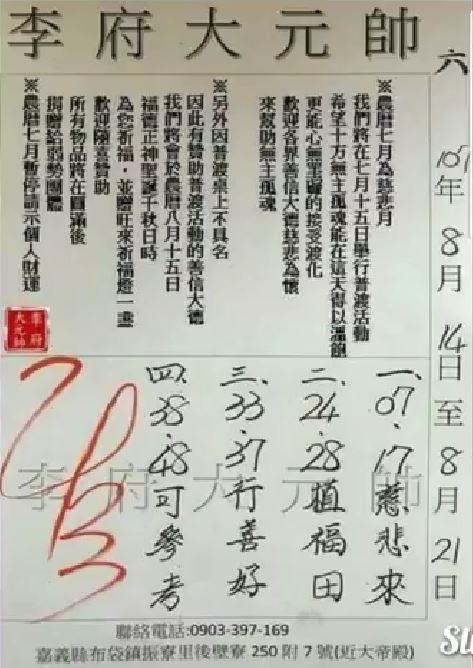 李府大元帥
六
年8月14日至8月21日
※農曆七月為慈悲月
我們將在七月十五日舉行普渡活動
希望十方無主孤魂能在這天得以溫飽
更能心無罣礙的接受渡化
歡迎各界善信大德慈悲為懷
來幫助無主孤魂
※另外因普渡桌上不具名
因此有贊助普渡活動的善信大德
我們將會於農曆八月十五日
福德正神聖誕千秋日時
為您祈福，並贈旺來祈福燈一盞
歡迎隨喜贊助
所有物品將在圓滿後
捐贈給弱勢團體
※農曆七月暫停請示個人財運
李府
大元帥
一、07.17慈悲來
二、24.28植福田
三、33.37行善好
四、38.48可參考
李府大元帥
聯絡電話:0903-397-169
嘉義縣布袋鎮振寮里後壁寮 250 附 7 號(近大帝殿)